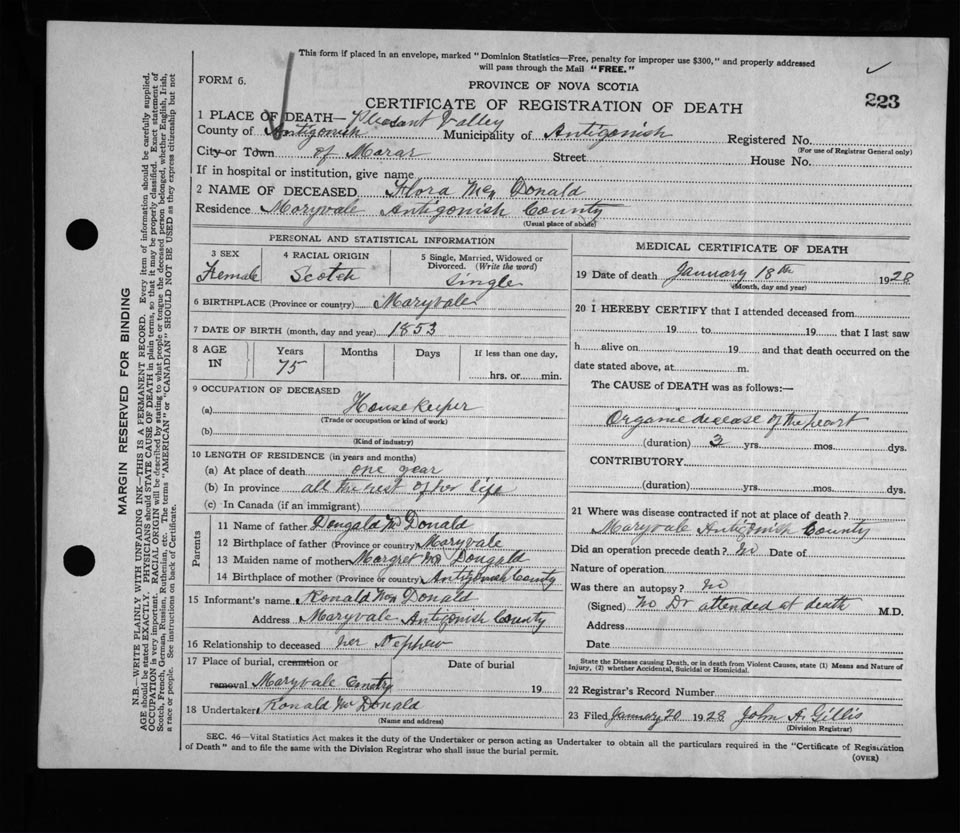 This form if placed in an envelope, marked "Dominion Statistics—Free, penalty for improper use $300," and properly addressed
will pass through the Mail "FREE."
FORM 6.
PROVINCE OF NOVA SCOTIA
223
CERTIFICATE OF REGISTRATION OF DEATH
1 PLACE OF DEATH— Pleasant Valley
County of Antigonish Municipality of Antigonish Registered No.
(For use of Registrar General only)
City or Town of Street House No.
If in hospital or institution, give name
2 NAME OF DECEASED Flora Mc Donald
Residence Maryvale Antigonish County
(Usual place of abode)
PERSONAL AND STATISTICAL INFORMATION
3 SEX 4 RACIAL ORIGIN 5 Single, Married, Widowed or
Divorced. (Write the word)
Female Scotch Single
6 BIRTHPLACE (Province or country) Maryvale
7 DATE OF BIRTH (month, day and year) 1853
8 AGE IN Years Months Days If less than one day,
75 hrs. or min.
9 OCCUPATION OF DECEASED
(a) House Keeper
(Trade or occupation or kind of work)
(b)
(Kind of industry)
10 LENGTH OF RESIDENCE (in years and months)
(a) At place of death one year
(b) In province all the rest of her life
(c) In Canada (if an immigrant)
Parents
11 Name of father Dougald Mc Donald
12 Birthplace of father (Province or country) Maryvale
13 Maiden name of mother Margret Mc Dougald
14 Birthplace of mother (Province or country) Antigonish County
15 Informant's name Ronald Mc Donald
Address Maryvale Antigonish County
16 Relationship to deceased her Nephew
17 Place of burial, cremation or Date of burial
removal Maryvale 19
18 Undertaker Ronald Mc Donald
(Name and address)
MEDICAL CERTIFICATE OF DEATH
19 Date of death January 18th 1928
(Month, day and year)
20 I HEREBY CERTIFY that I attended deceased from
19 to 19 that I last saw
h alive on 19 and that death occurred on the
date stated above, at m.
The CAUSE of DEATH was as follows:—
Organic disease of the heart
(duration) 3 yrs. mos. dys.
CONTRIBUTORY
(duration) yrs. mos. dys.
21 Where was disease contracted if not at place of death?
Maryvale Antigonish County
Did an operation precede death? No Date of
Nature of operation
Was there an autopsy? No
(Signed) No Dr attended at death M.D.
Address
Date
State the Disease causing Death, or in death from Violent Causes, state (1) Means and Nature of
Injury, (2) whether Accidental, Suicidal or Homicidal.
22 Registrar's Record Number
23 Filed January 20 1928 John A Gillis
(Division Registrar)
SEC. 46—Vital Statistics Act makes it the duty of the Undertaker or person acting as Undertaker to obtain all the particulars required in the "Certificate of Registration
of Death" and to file the same with the Division Registrar who shall issue the burial permit.
(OVER)
MARGIN RESERVED FOR BINDING
N.B.—WRITE PLAINLY WITH UNFADING INK—THIS IS A PERMANENT RECORD. Every item of information should be carefully supplied.
AGE should be stated EXACTLY. PHYSICIANS should STATE CAUSE OF DEATH in plain terms, so that it may be properly classified. Exact statement of
OCCUPATION is very important. RACIAL ORIGIN will be described by stating to what people or tongue the deceased person belonged, whether English, Irish,
Scotch, French, German, Russian, Ruthenian, etc. The terms "AMERICAN" or "CANADIAN" SHOULD NOT BE USED as they express citizenship but not
a race or people. See instructions on back of Certificate.